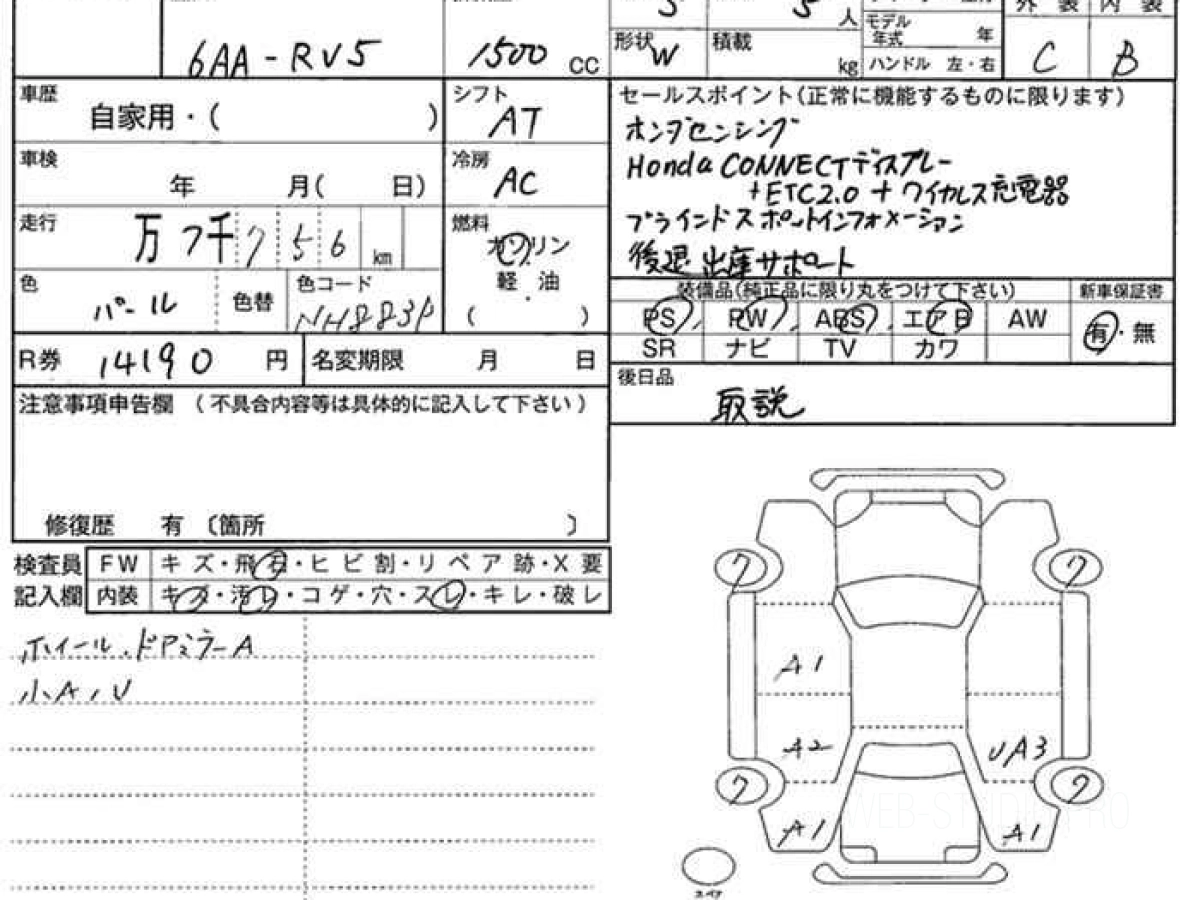 5 5 人 外 装 内 装
モデル年式 年
6AA-RV5 1500 cc 形状 W 積載 kg ハンドル 左・右 C B
車歴 自家用・( ) シフト AT
セールスポイント(正常に機能するものに限ります)
ホンダセンシング
Honda CONNECTディスプレー
+ETC2.0+ワイヤレス充電器
ブラインドスポットインフォメーション
後退出庫サポート
車検 年 月( 日) 冷房 AC
走行 万 7千 7 5 6 km 燃料 ガソリン
軽・油
( )
色 パール 色替 色コード NH883P
装備品(純正品に限り丸をつけて下さい) 新車保証書
PS PW ABS エアB AW 有・無
SR ナビ TV カワ
R券 14190 円 名変期限 月 日
後日品 取説
注意事項申告欄 (不具合内容等は具体的に記入して下さい)
修復歴 有 〔箇所 〕
検査員 FW キズ・飛石・ヒビ割・リペア跡・X要
記入欄 内装 キズ・汚レ・コゲ・穴・スレ・キレ・破レ
ホイール.ドアミラーA
小A,U
7 7
A1
A2 UA3
7 7
A1 A1
スペア
WEB-STUDIO PRO